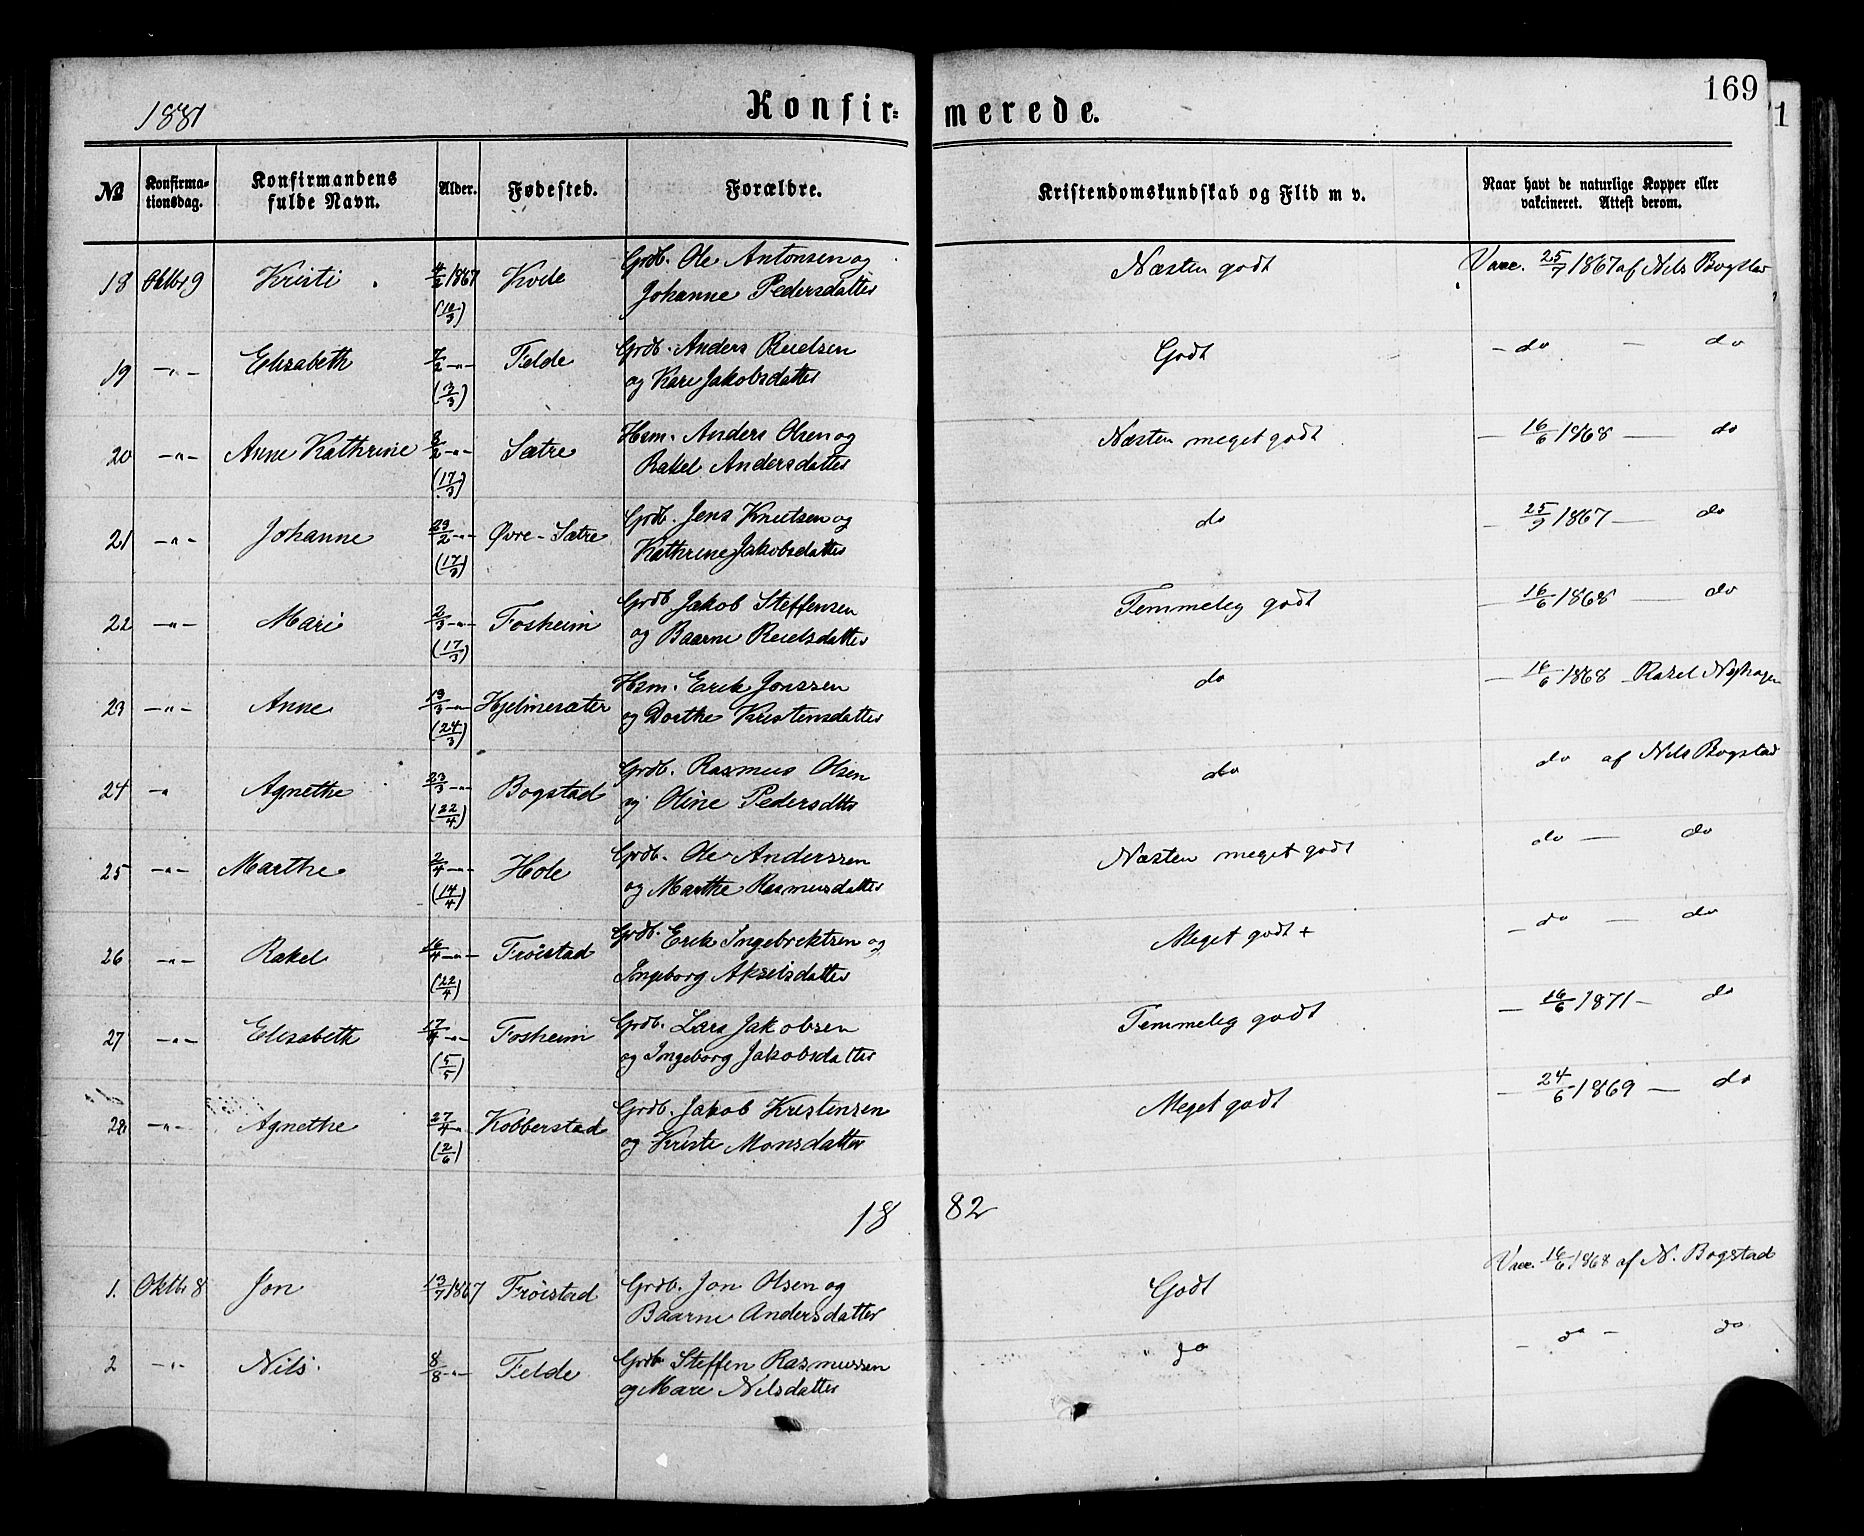 1881
Konfir- merede.
169
1
№
Konfirma-
tionsdag.
Konfirmandens
fulde Navn.
Alder.
Fødested.
Forældre.
Kristendomskundskab og Flid m v.
Naar havt de naturlige Kopper eller
vakcineret. Attest derom.
18 Oktbr 9 Kristi 4/2 1867 Kvile Grdb. Ole Antonsen og Næsten godt Vacc. 25/7 1867 af Nils Bogstad
(12/3) Johanne Pedersdatter
19 -"- Elisabeth 7/2 -"- Felde Grdb. Anders Reielsen Godt - do - do
(3/3) og Kari Jakobsdatter
20 -"- Anne Kathrine 8/2 -"- Sætre Hsm. Anders Olsen og Næsten meget godt - 16/6 1868 - do
(17/3) Rakel Andersdatter
21 -"- Johanne 23/2 -"- Øvre-Sætre Grdb. Jens Knutsen og do - 25/7 1867 - do
(17/3) Kathrine Jakobsdatter
22 -"- Mari 2/3 -"- Fosheim Grdb Jakob Steffensen Temmelig godt - 16/6 1868 - do
(17/3) og Baarni Reielsdatter
23 -"- Anne 19/3 -"- Hjelmesæter Hsm. Erik Jonssen do - 16/6 1868 - Rasel Nyhagen
(24/3) og Dorthe Kristensdatter
24 -" Agnethe 23/3 -"- Bogstad Grdb. Rasmus Olsen do do af Nils Bogstad
(22/4) og Oline Pedersdtter
25 -"- Marthe 2/4 -"- Hole Grdb. Ole Anderssen Næsten meget godt do - do
(14/4) og Marthe Rasmusdatter
26 -"- Rakel 16/4 -"- Frøistad Grdb. Erik Ingebrektsen og Meget godt + - do - do
(22/4) Ingeborg Akselsdatter
27 -"- Elisabeth 17/4 -"- Fosheim Grdb. Lars Jakobsen Temmelig godt - 16/6 1871 - do
(5/5) og Ingeborg Jakobsdatter
28 -"- Agnethe 27/4 -"- Kobberstad Grdb. Jakob Kristensen Meget godt - 24/6 1869 - do
(2/6) og Kristi Monsdatter
18 82
1. Oktbr 8 Jon 13/7 1867 Frøistad Grdb. Jon Olsen og Godt Vacc. 16/6 1868 af N. Bogstad
Baarni Andersdatter
2 -"- Nils. 8/8 -"- Felde Grdb Steffen Rasmussen do - do - do
og Mari Nilsdatter